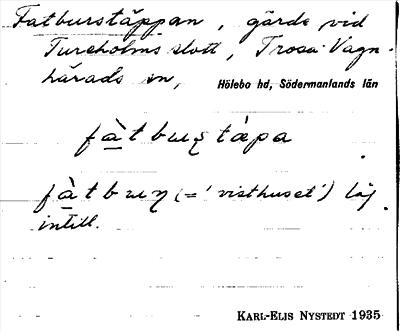 Fatburstäppan, gärde vid
Tureholms slott, Trosa-Vagn-
härads sn, Hölebo hd, Södermanlands län
fàtbuʂtápa
fàtbuɳ (= 'visthuset') låg
intill.
KARL-ELIS NYSTEDT 1935